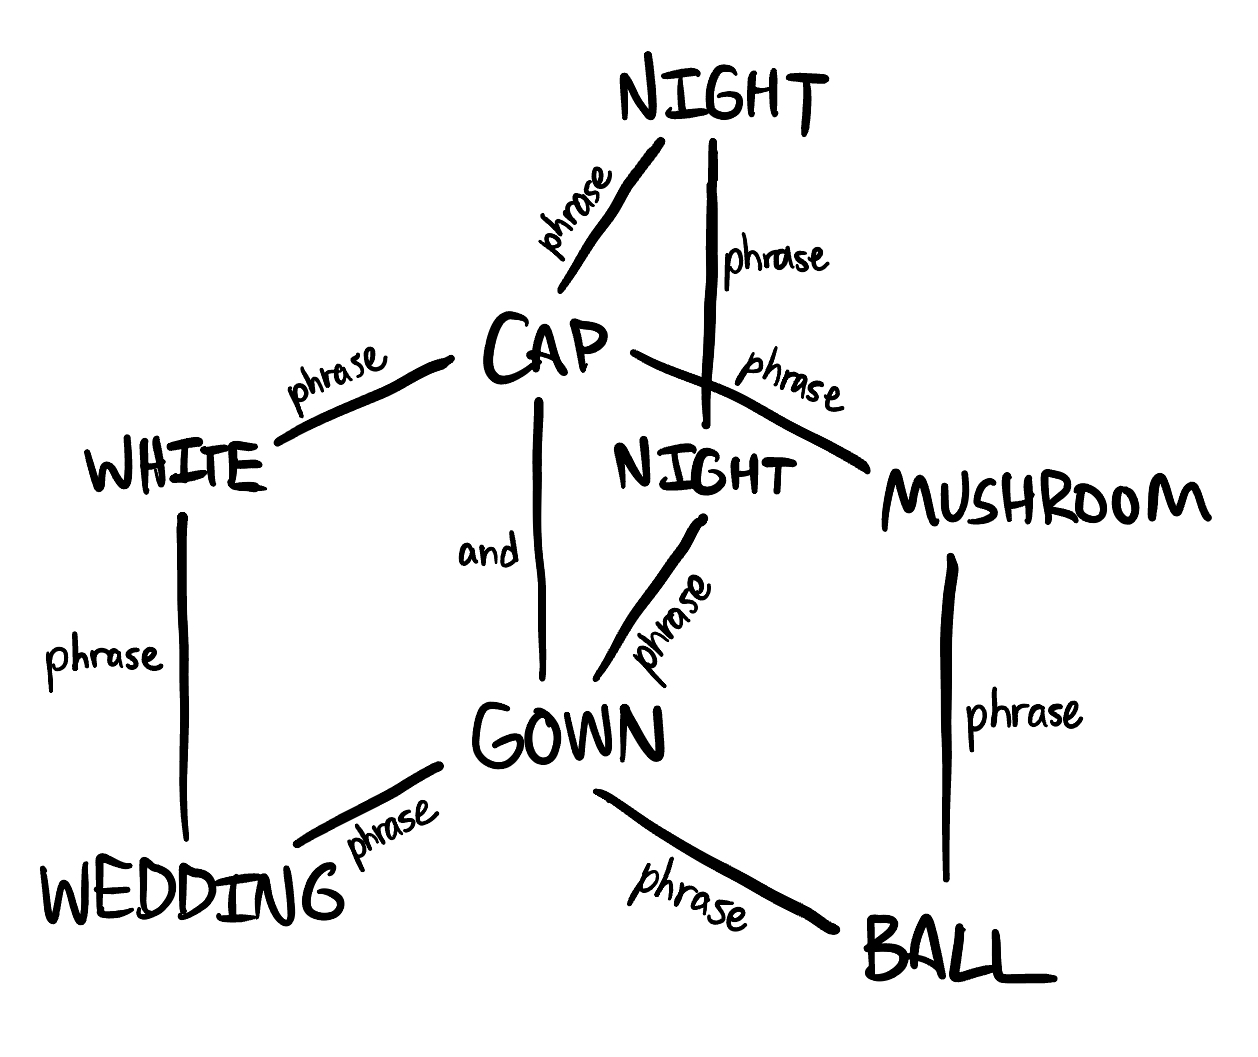 NIGHT
phrase
phrase
CAP
phrase
phrase
WHITE
NIGHT
MUSHROOM
and
phrase
phrase
phrase
GOWN
phrase
phrase
WEDDING
BALL